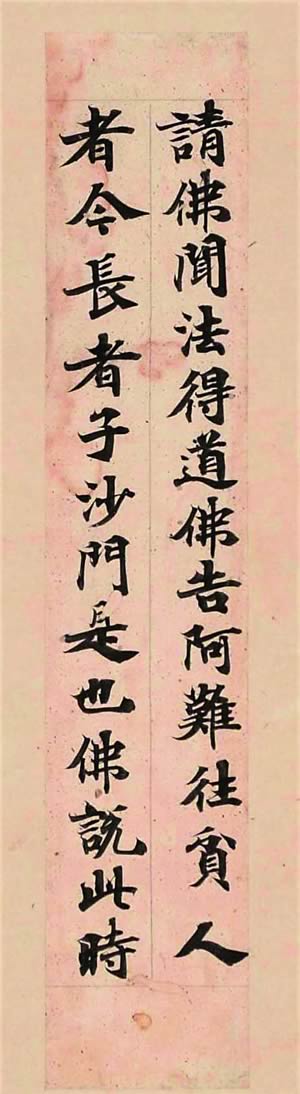 請佛聞法得道佛告阿難往貧人
者今長者子沙門是也佛説此時